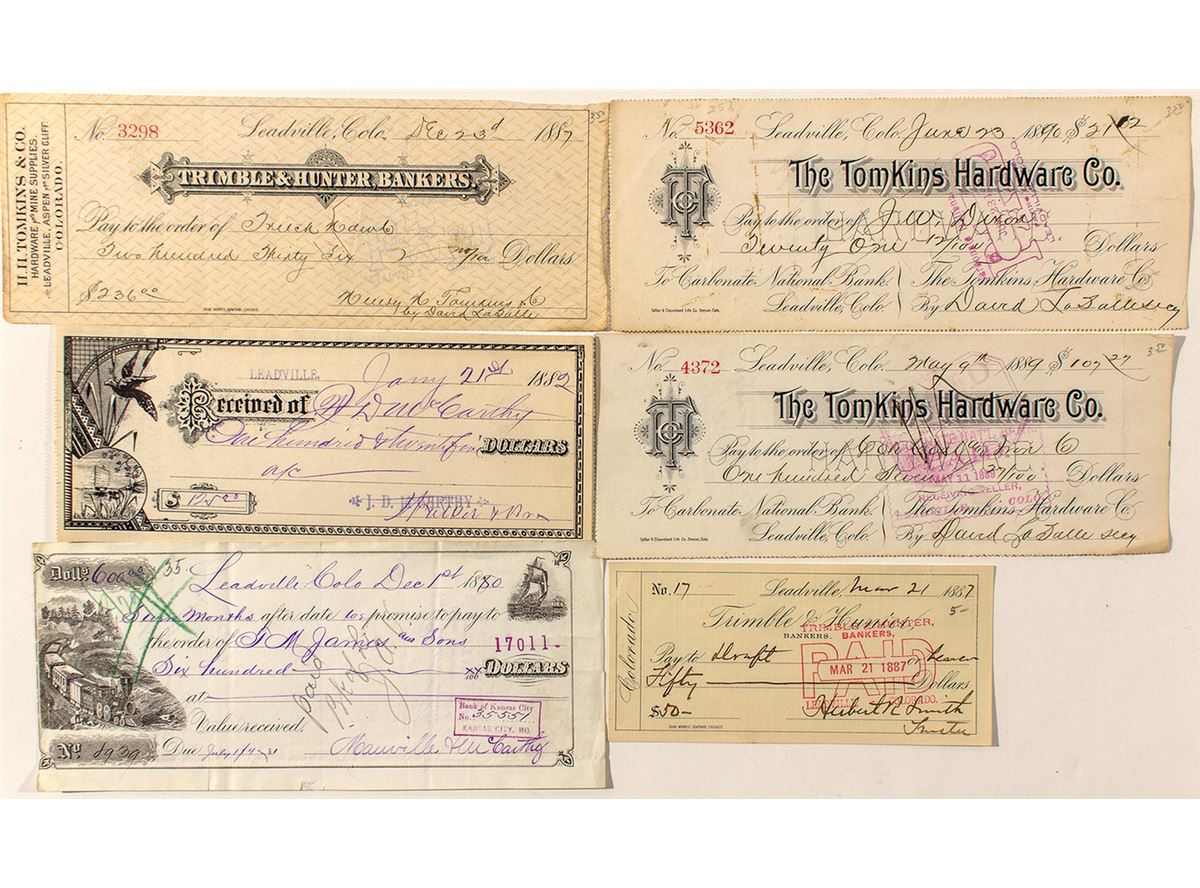 H.H. TOMKINS & CO.
HARDWARE AND MINE SUPPLIES.
LEADVILLE, ASPEN AND SILVER CLIFF
COLORADO.
No. 3298 Leadville, Colo. Dec 23d 1887
TRIMBLE & HUNTER, BANKERS.
Pay to the order of
Two hundred Thirty Six no/100 Dollars
$236.00
Henry H. Tomkins & Co
by David LaSalle
JOHN MORRIS COMPANY, CHICAGO.
No. 5362 Leadville, Colo. June 23 1890 $21
The Tomkins Hardware Co.
Pay to the order of J.W. Dixon
Twenty One Dollars
To Carbonate National Bank. The Tomkins Hardware Co.
Leadville, Colo. By David LaSalle secy
LEADVILLE. Jany 21st 1882
Received of J D McCarthy
One hundred & twenty five DOLLARS
a/c
$ 125.00
J. D. McCARTHY
No. 4372 Leadville, Colo. May 9th 1889 $107.27
The Tomkins Hardware Co.
Pay to the order of
One hundred Seven 27/100 Dollars
PAID
MAY 11 1889
RECEIVING TELLER,
COLO.
To Carbonate National Bank. The Tomkins Hardware Co.
Leadville, Colo. By David LaSalle secy
Dolls 600.00 35 Leadville Colo Dec 1st 1880
Months after date we promise to pay to
the order of J M James and Sons
17011
Six hundred xx/100 DOLLARS
at
Bank of Kansas City
No. 35551
KANSAS CITY, MO.
Value received,
No 8939 Due July 1/4 81 Manville & McCarthy
No. 17 Leadville, Mar 21 1887
5-
Colorado
Trimble & Hunter
BANKERS.
TRIMBLE & HUNTER,
BANKERS,
Pay to Draft or bearer
PAID
MAR 21 1887
Fifty Dollars
LEADVILLE, COLORADO.
$50- Herbert R Smith
Trustee
JOHN MORRIS COMPANY, CHICAGO